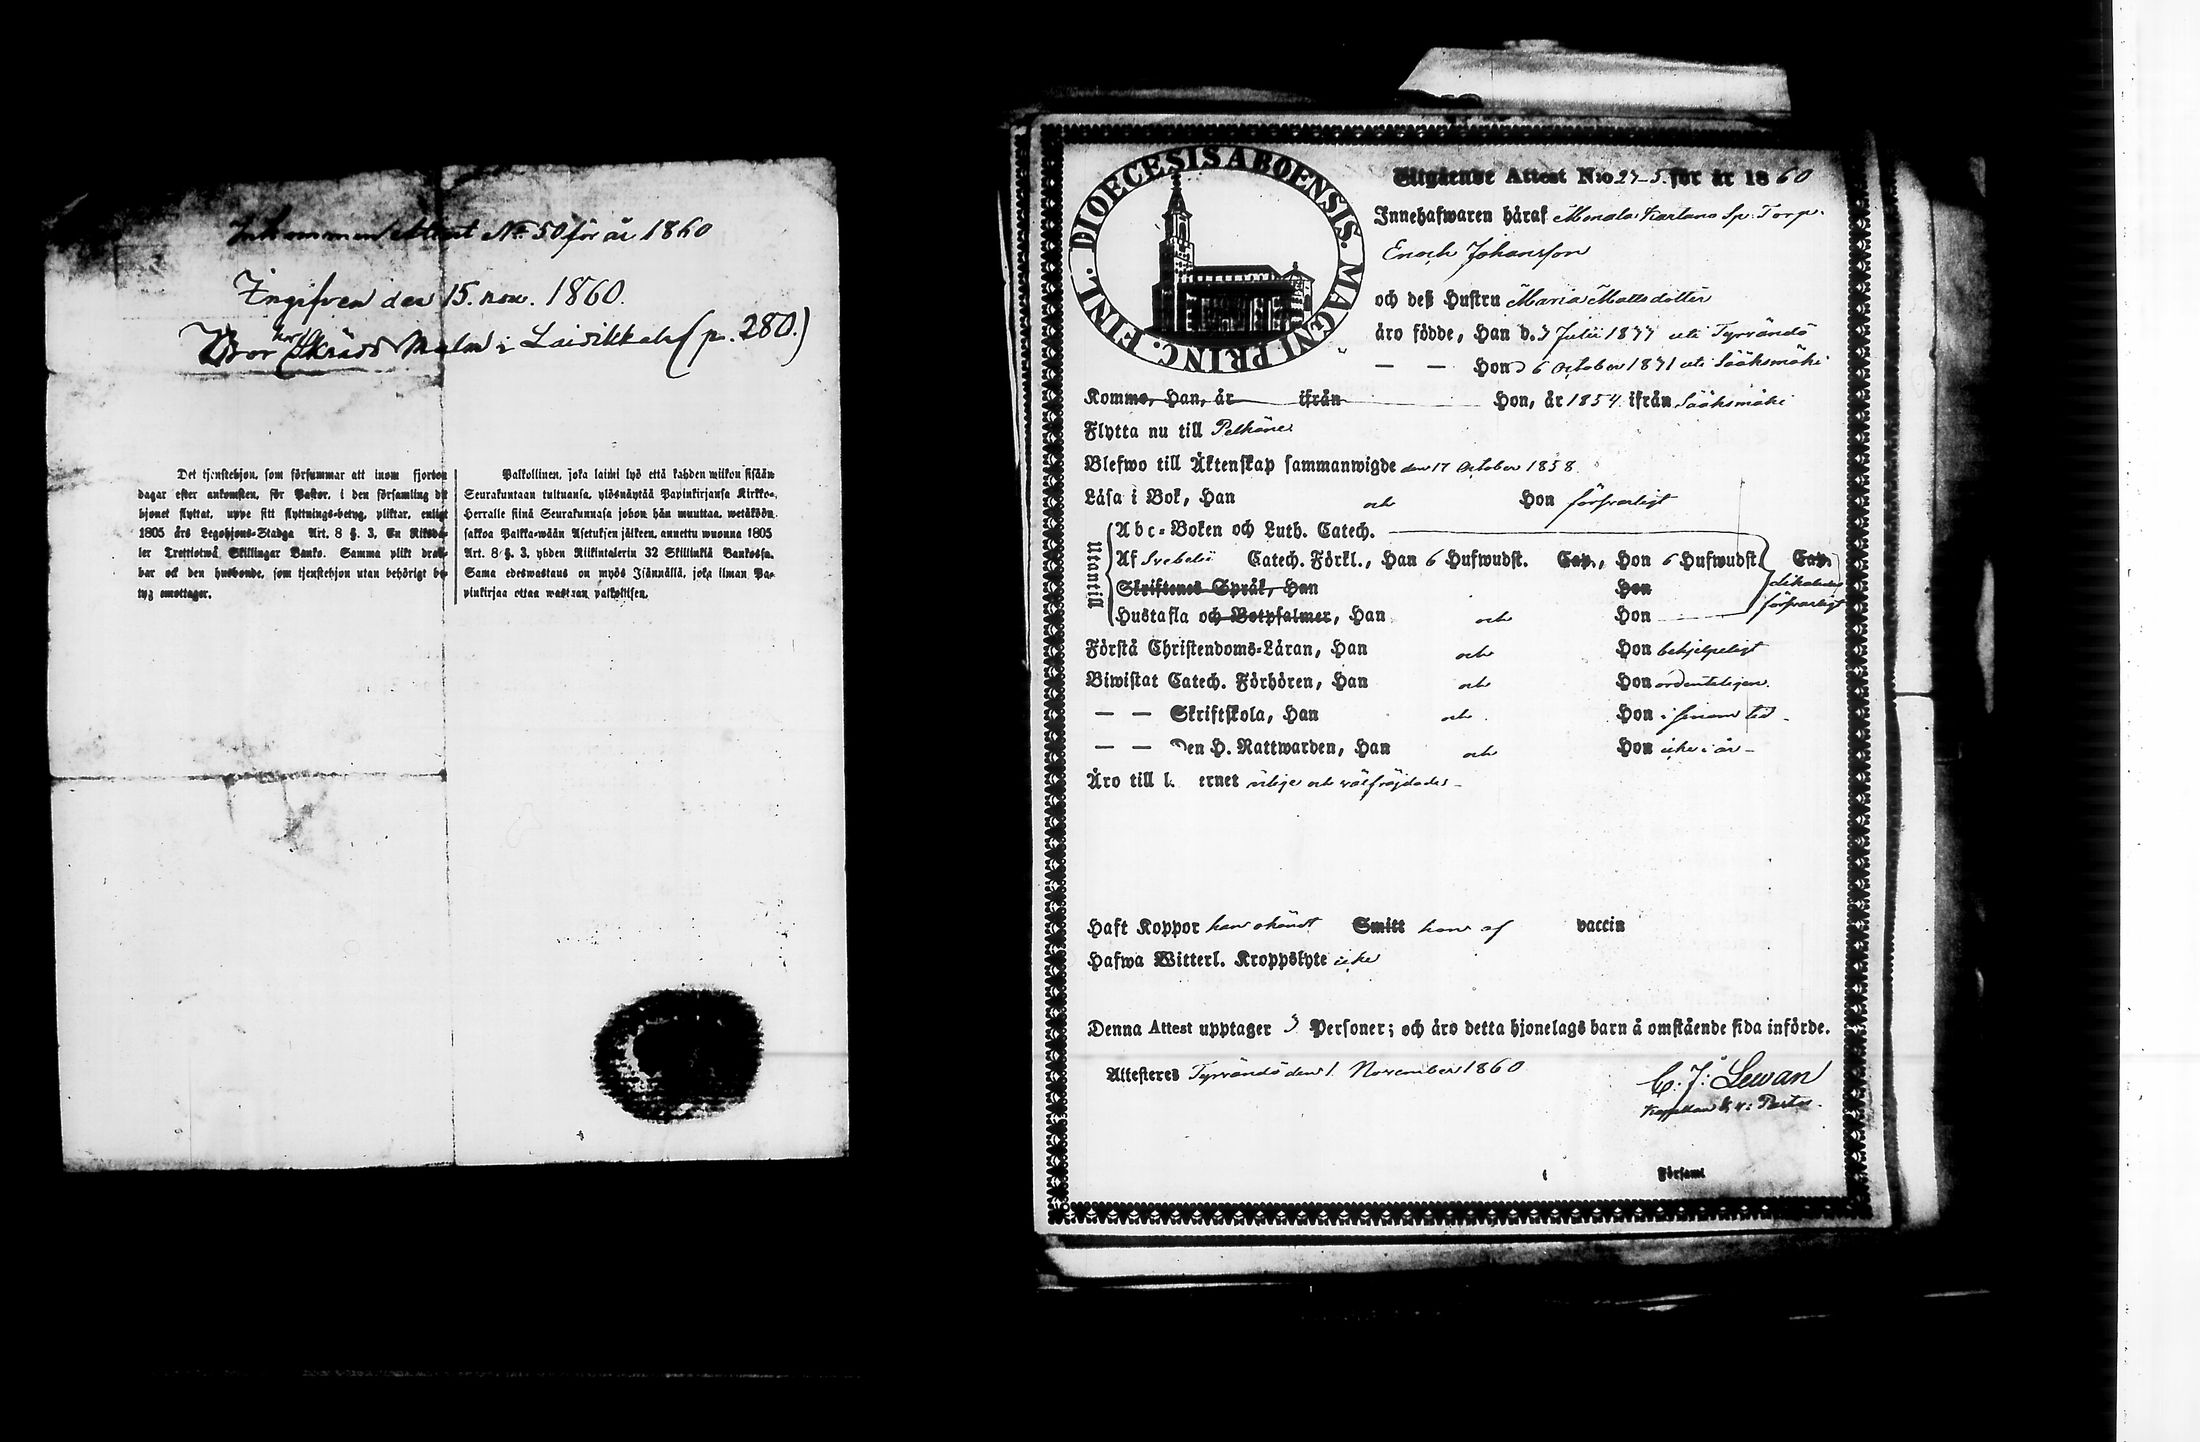 Inkommen Attest No 50 för år 1860
Ingifven den 15. nov. 1860.
Bor hos Skrädd Malm i Laidikkala (p. 280.)
Det tjenstehjon, som försummar att inom fjorton
dagar efter ankomsten, för Pastor, i den församling dit
hjonet flyttat, uppe sitt flyttnings-betyg, pliktar, enligt
1805 års Legohjons-Stadga Art. 8 §. 3, En Riksda-
ler Trettiotwå Skillingar Banko. Samma plikt drab-
bar ock den husbonde, som tjenstehjon utan behörigt be-
tyg emottager.
Palkollinen, joka laimi lyö että kahden wiikon sisään
Seurakuntaan tultuansa, ylösnäytää Papinkirjansa Kirkko-
Herralle siinä Seurakunnasa johon hän muuttaa, wetäköön
sakkoa Palkka-wään Asetuksen jälkeen, annettu wuonna 1805
Art. 8 §. 3, yhden Riikintalerin 32 Skillinkiä Bankossa.
Sama edeswastaus on myös Isännällä, joka ilman Pa-
pinkirjaa ottaa wastaan palkollisen.
DIOECESIS ABOENSIS. MAGNI PRINC. FINL.
Utgående Attest N:o 27-5. för år 1860
Innehafwaren häraf Monala Kartano Sp. Torp.
Enoch Johansson
och deß Hustru Maria Mattsdotter
äro födde, Han d. 3 Julii 1837 uti Tyrvändö
— — Hon d 6 October 1831 uti Sääksmäki
Komme, Han, år ifrån Hon, år 1854 ifrån Sääksmäki
Flytta nu till Pelkäne
Blefwo till Äktenskap sammanwigde den 17 October 1858
Läsa i Bok, Han och Hon försvarligt
Utantill
Abc-Boken och Luth. Catech.
Af Svebelii Catech. Förkl., Han 6 Hufwudst. Cap., Hon 6 Hufwudst. Cap.
Skriftenes Språk, Han Hon likaledes
Hustafla och Botpsalmer, Han och Hon försvarligt
Förstå Christendoms-Läran, Han och Hon behjelpeligt
Biwistat Catech. Förhören, Han och Hon ordenteligen.
— — Skriftskola, Han och Hon i sinom tid
— — Den H. Nattwarden, Han och Hon icke i år
Äro till l. ernet ärlige och välfrejdade
Haft Koppor han okändt Smitt hon af vaccin
Hafwa Witterl. Kroppslyte icke
Denna Attest upptager 3 Personer; och äro detta hjonelags barn å omstående sida införde.
Attesteres Tyrvändö den 1 November 1860
C. J. Lewan
Kapellan
Församl